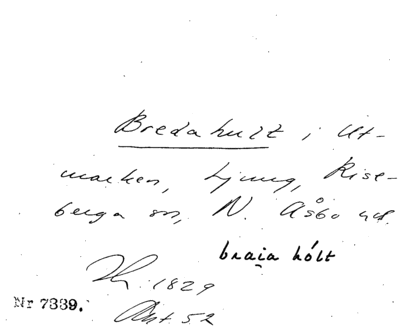 Bredahult i Ut-
marken, Ljung, Rise-
berga sn, N. Åsbo hd.
braia hólt
1829
Nr 7339.
Akt. 52